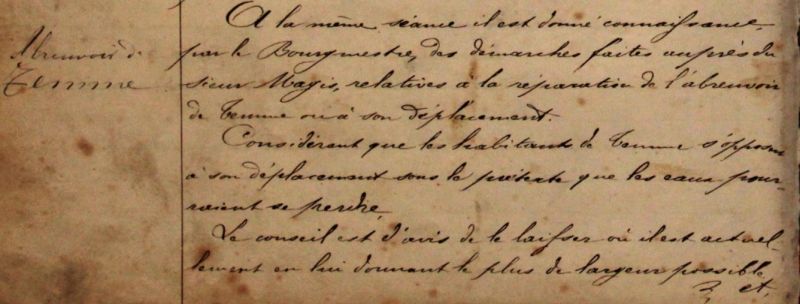 A la même séance il est donné connaissance,
Abreuvoir de
par le Bourgmestre, des démarches faites auprès du
Temme
sieur Magis, relatives à la réparation de l'abreuvoir
de Temme ou à son déplacement.
Considérant que les habitants de Temme s'opposent
à son déplacement sous le prétexte que les eaux pour-
raient se perdre,
Le conseil est d'avis de le laisser où il est actuel
lement en lui donnant le plus de largeur possible
et